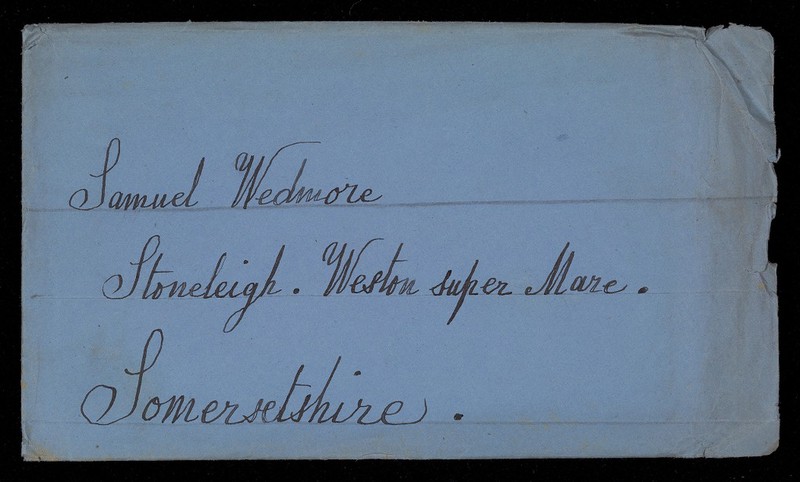 Samuel Wedmore
Stoneleigh. Weston super Mare.
Somersetshire.